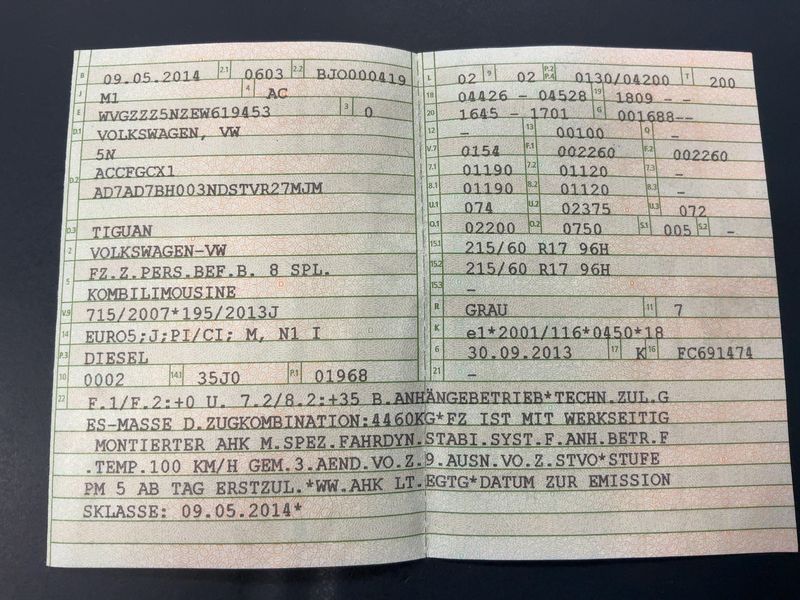 B 09.05.2014 2.1 0603 2.2 BJO000419
J M1 4 AC
E WVGZZZ5NZEW619453 3 0
D.1 VOLKSWAGEN, VW
5N
D.2 ACCFGCX1
AD7AD7BH003NDSTVR27MJM
D.3 TIGUAN
2 VOLKSWAGEN-VW
5 FZ.Z.PERS.BEF.B. 8 SPL.
KOMBILIMOUSINE
V.9 715/2007*195/2013J
14 EURO5;J;PI/CI; M, N1 I
P.3 DIESEL
10 0002 14.1 35J0 P.1 01968
L 02 9 02 P.2 P.4 0130/04200 T 200
18 04426 - 04528 19 1809 - -
20 1645 - 1701 G 001688--
12 - 13 00100 Q -
V.7 0154 F.1 002260 F.2 002260
7.1 01190 7.2 01120 7.3 -
8.1 01190 8.2 01120 8.3 -
U.1 074 U.2 02375 U.3 072
O.1 02200 O.2 0750 S.1 005 S.2 -
15.1 215/60 R17 96H
15.2 215/60 R17 96H
15.3 -
R GRAU 11 7
K e1*2001/116*0450*18
6 30.09.2013 17 K 16 FC691474
21 -
22 F.1/F.2:+0 U. 7.2/8.2:+35 B.ANHÄNGEBETRIEB*TECHN.ZUL.G
ES-MASSE D.ZUGKOMBINATION:4460KG*FZ IST MIT WERKSEITIG
MONTIERTER AHK M.SPEZ.FAHRDYN.STABI.SYST.F.ANH.BETR.F
.TEMP.100 KM/H GEM.3.AEND.VO.Z.9.AUSN.VO.Z.STVO*STUFE
PM 5 AB TAG ERSTZUL.*WW.AHK LT.EGTG*DATUM ZUR EMISSION
SKLASSE: 09.05.2014*